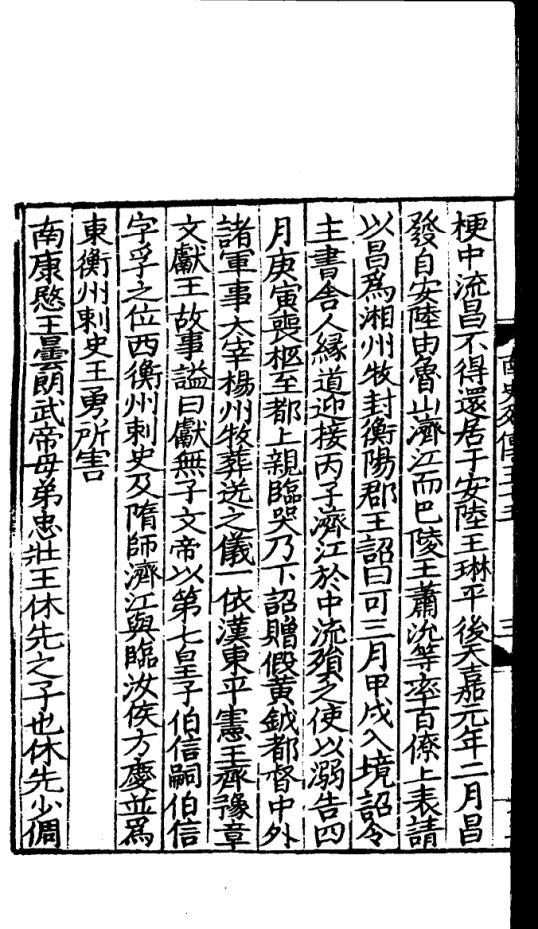 南史列傳五十五
三
梗中流昌不得還居于安陸王琳平後天嘉元年二月昌
發自安陸由魯山濟江而巴陵王蕭沇等率百僚上表請
以昌爲湘州牧封衡陽郡王詔曰可三月甲戌入境詔令
主書舍人緣道迎接丙子濟江於中流殞之使以溺告四
月庚寅喪柩至都上親臨哭乃下詔贈假黃鉞都督中外
諸軍事太宰楊州牧葬送之儀一依漢東平憲王齊豫章
文獻王故事謚曰獻無子文帝以第七皇子伯信嗣伯信
字孚之位西衡州刺史及隋師濟江與臨汝侯方慶並爲
東衡州刺史王勇所害
南康愍王曇朗武帝母弟忠壯王休先之子也休先少倜